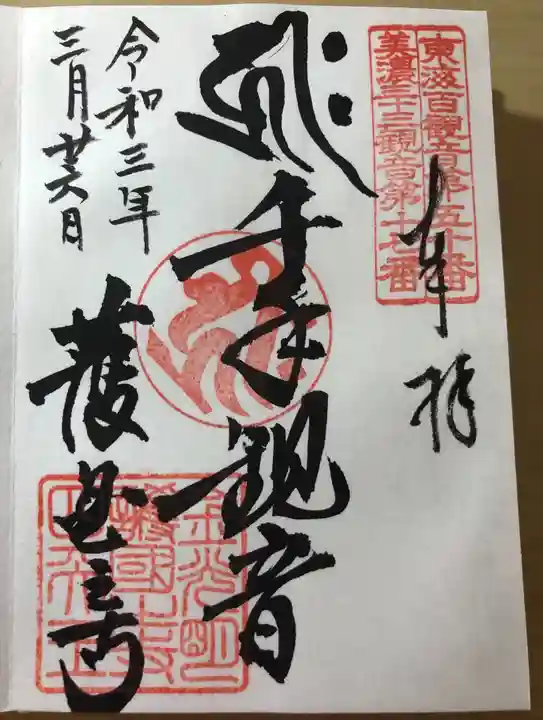 東海百観音第五十番
美濃三十三観音第十七番
奉拝
千手観音
護国之寺
令和三年
三月廿六日
金光明
護國之寺